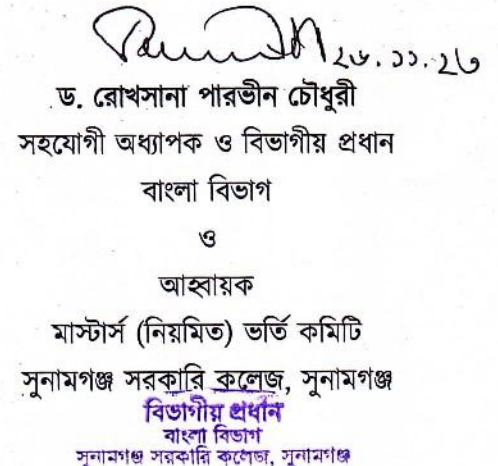 ২৬.১১.২৩
ড. রোখসানা পারভীন চৌধুরী
সহযোগী অধ্যাপক ও বিভাগীয় প্রধান
বাংলা বিভাগ
ও
আহ্বায়ক
মাস্টার্স (নিয়মিত) ভর্তি কমিটি
সুনামগঞ্জ সরকারি কলেজ, সুনামগঞ্জ
বিভাগীয় প্রধান
বাংলা বিভাগ
সুনামগঞ্জ সরকারি কলেজ, সুনামগঞ্জ